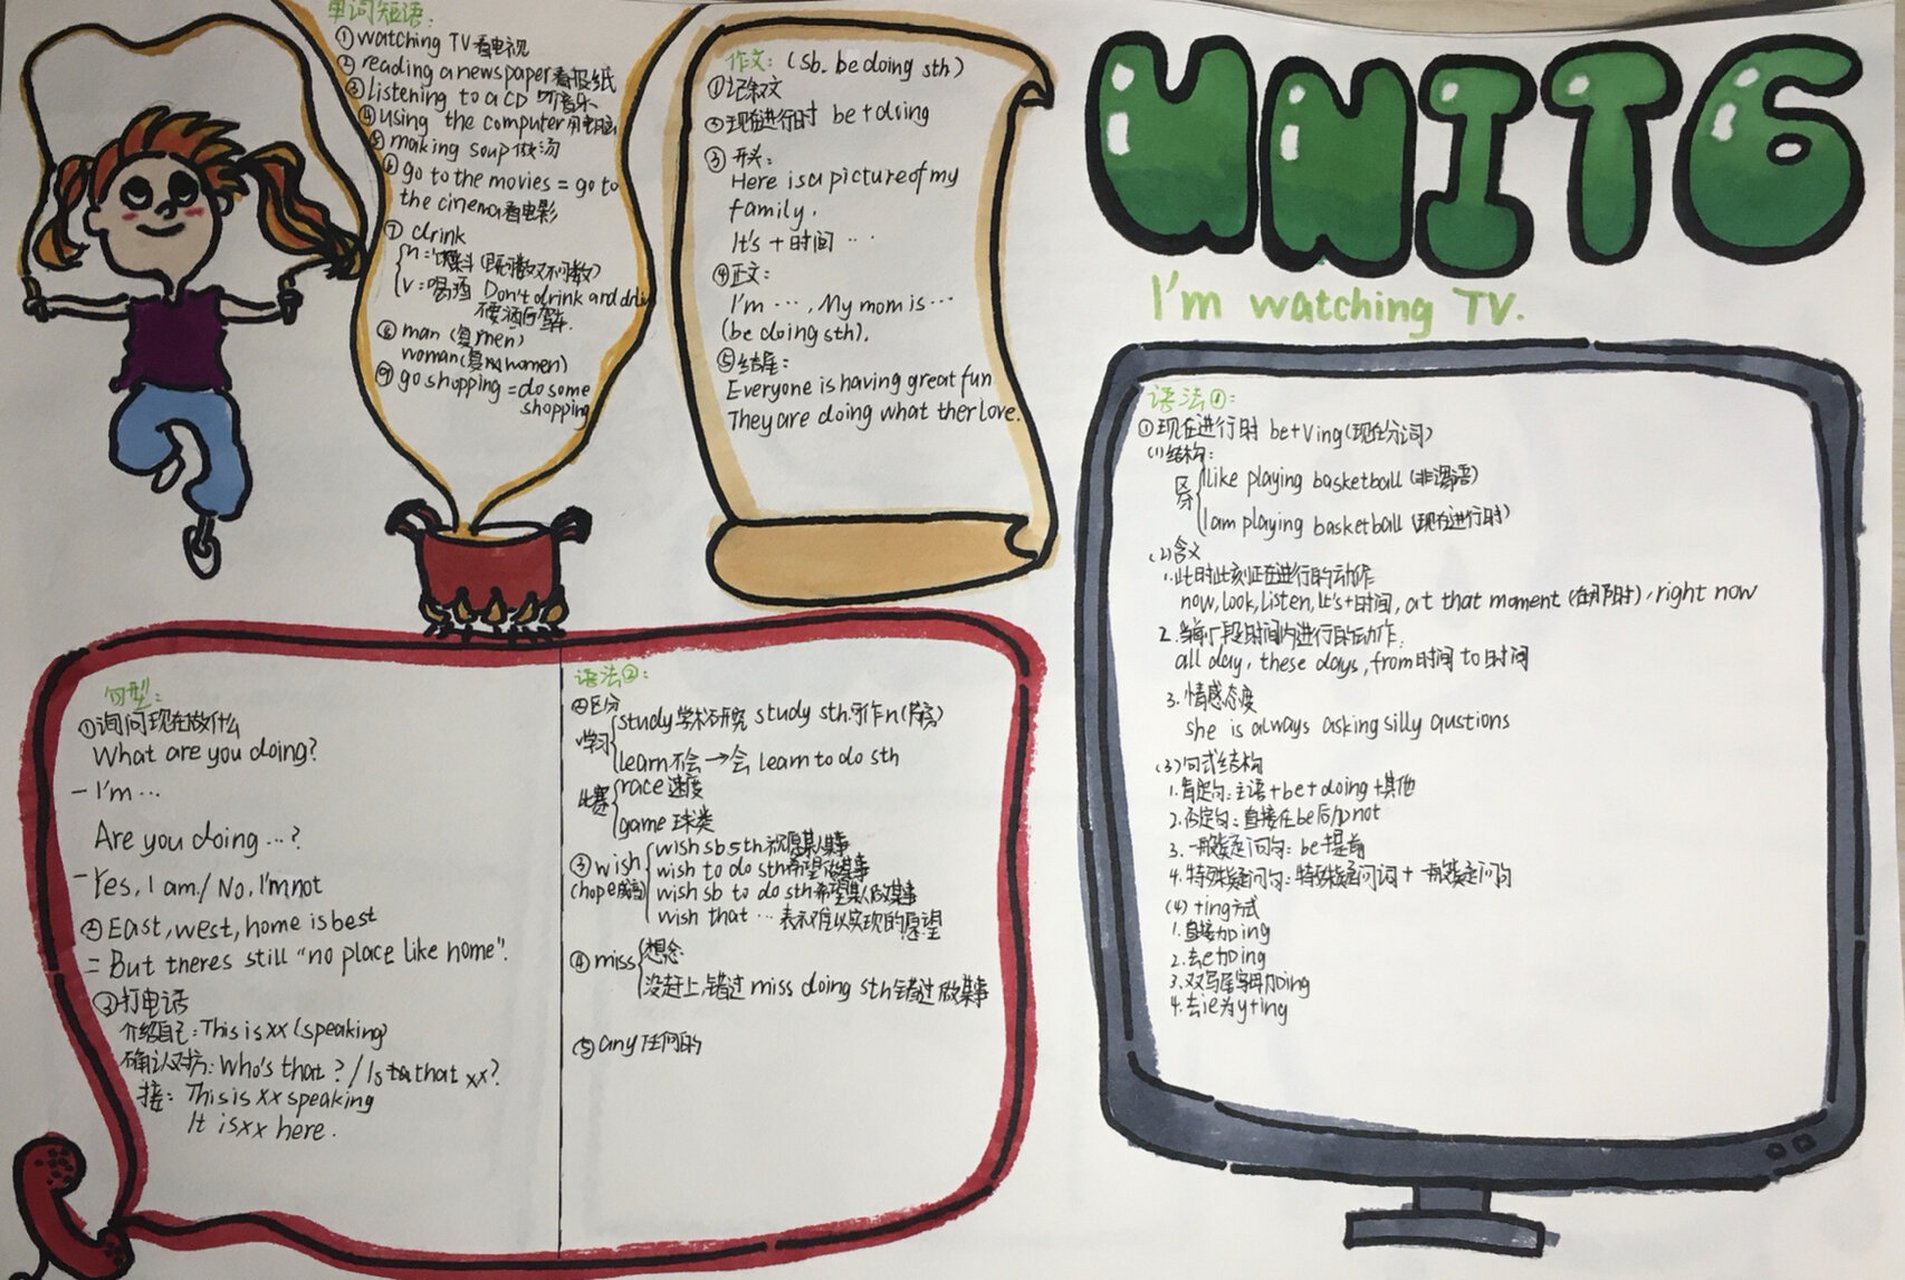 单词短语:
①watching TV看电视
②reading a newspaper看报纸
③listening to a CD 听音乐
④using the computer用电脑
⑤making soup做汤
⑥go to the movies = go to
the cinema看电影
⑦ drink
n:饮料(既可数又不可数)
v:喝酒 Don't drink and drive
不要酒后驾车.
⑧ man (复men)
woman(复women)
⑨go shopping =do some
shopping
作文: (sb. be doing sth)
①记叙文
②现在进行时 be+doing
③ 开头:
Here is a picture of my
family.
It's + 时间 …
④正文:
I'm …, My mom is …
(be doing sth).
⑤结尾:
Everyone is having great fun
They are doing what ther love.
UNIT6
I'm watching TV.
语法①:
①现在进行时 be+Ving(现在分词)
(1)结构:
区分
I like playing basketball (非谓语)
I am playing basketball (现在进行时)
(2)含义
1.此时此刻正在进行的动作
now, look, listen, It's+时间, at that moment (在那时), right now
2.当前一段时间内进行的动作:
all day, these days, from时间 to 时间
3.情感态度
she is always asking silly qustions
(3)句式结构
1.肯定句:主语+be+doing+其他
2.否定句:直接在be后加not
3.一般疑问句: be提前
4.特殊疑问句:特殊疑问词+一般疑问句
(4)+ing方式
1.直接加ing
2.去e加ing
3.双写尾字母加ing
4.去ie为y+ing
句型:
①询问现在做什么
What are you doing?
— I'm …
Are you doing …?
— Yes, I am./ No, I'm not
②East, west, home is best
= But theres still "no place like home".
③打电话
介绍自己: This is xx (speaking)
确认对方: Who's that? / Is that xx?
接: This is xx speaking
It is xx here.
语法②:
②区分
学习
study 学术研究 study sth.可作n(书房)
learn不会→会 learn to do sth
比赛
race 速度
game 球类
③wish
(hope成高)
wish sb sth 祝愿某人某事
wish to do sth希望做某事
wish sb to do sth希望某人做某事
wish that … 表示难以实现的愿望
④miss
想念
没赶上,错过 miss doing sth错过做某事
⑤any任何的